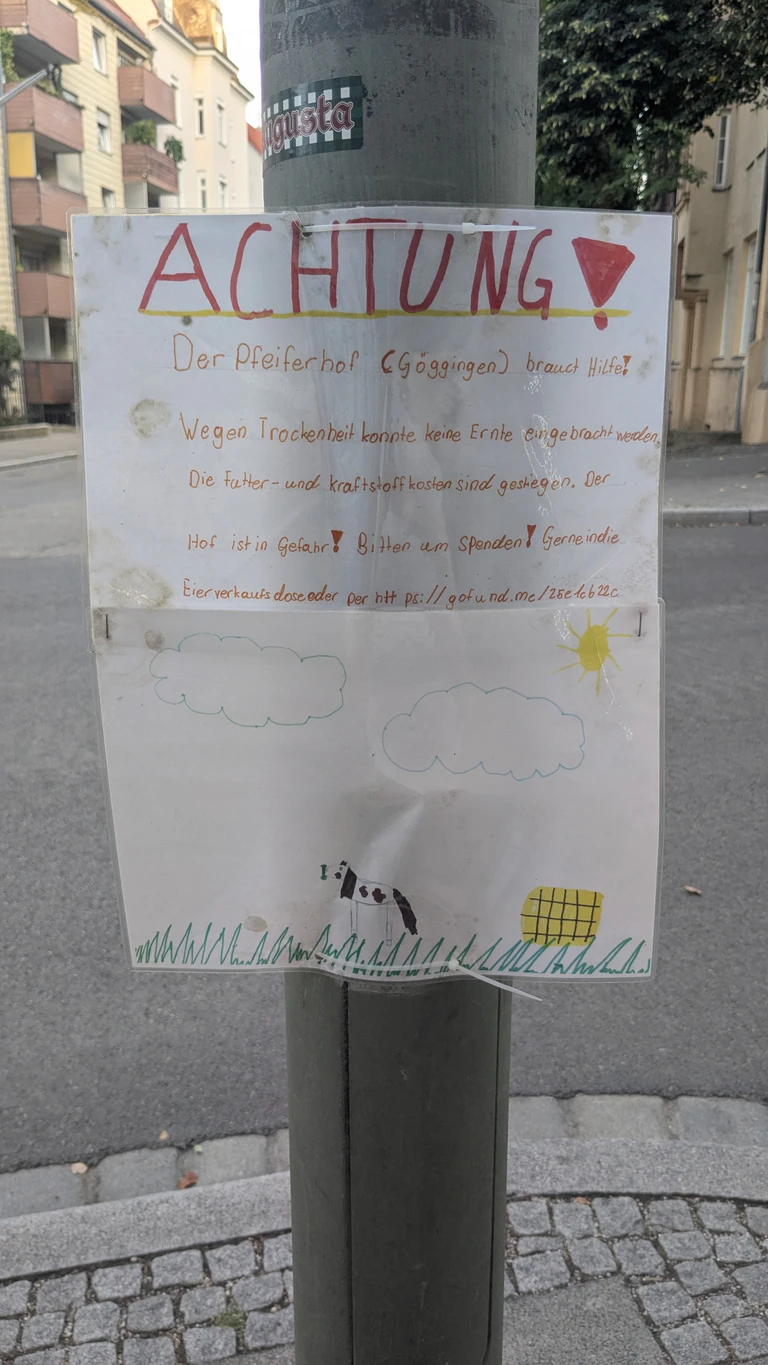 ugusta
ACHTUNG!
Der Pfeiferhof (Göggingen) brauct Hilfe!
Wegen Trockenheit konnte keine Ernte eingebracht werden,
Die Futter- und kraftstoffkosten sind gestiegen. Der
Hof ist in Gefahr! Bitten um Spenden! Gerne in die
Eierverkaufsdose oder per htt ps://gofund.me/25e1cb22c